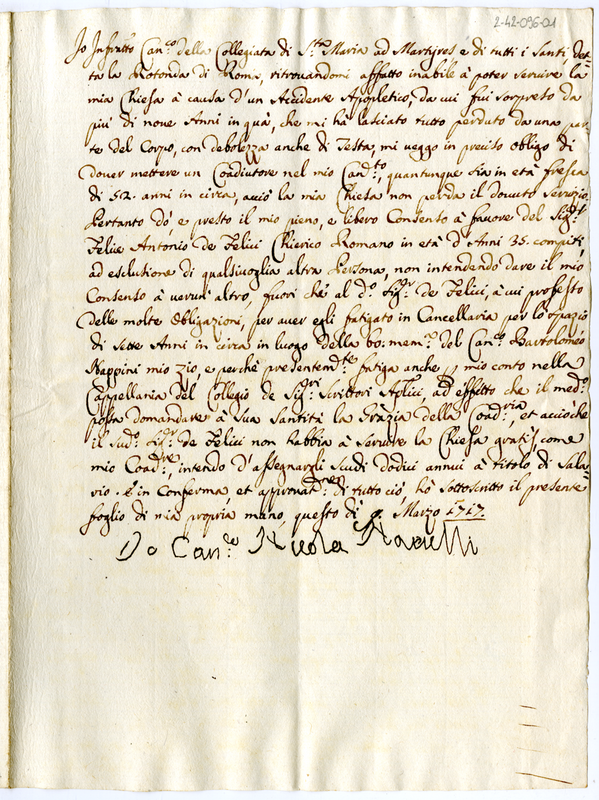 2-42-096-01
Io Infratto Can.co della Collegiata di S.ta Maria ad Martyres e di tutti i Santi, det=
ta la Rotonda di Roma, ritrovandomi affatto inabile à poter servire la
mia Chiesa à causa d'un Accidente Apopletico, da cui fui sorpreso da
più di nove Anni in quà, che mi hà lasciato tutto perduto da una par=
te del Corpo, con debolezza anche di Testa, mi veggo in preciso obligo di
dover mettere un Coadiutore nel mio Can.to, quantunque sia in età fresca
di 52. anni in circa, acciò la mia Chiesa non perda il dovuto servizio,
Pertanto dò, e presto il mio pieno, e libero Consenso à favore del Sig.r
Felice Antonio de Felici Chierico Romano in età d'Anni 35. compiti,
ad esclusione di qualsivoglia altra Persona, non intendendo dare il mio
Consenso à verun altro, fuori che al d.o Sig.r de Felici, à cui professo
delle molte Obligazioni, per aver egli fatigato in Cancellaria per lo spazio
di sette Anni in circa in luogo della bo: mem: del Can.co Bartolomeo
Nappini mio zio, e perchè presentem.te fatiga anche à mio conto nella
Cappellaria del Collegio de Sig.ri Scrittori Aplici, ad effetto che il med.o
possa domandare à Sua Santità la Gràzia della Coad.ria, et acciòche
il sud.o Sig.r de Felici non habbia à servire la Chiesa gratis come
mio Coad.re, intendo d'assegnargli scudi dodici annui à titolo di sala=
rio. E in conferma, et approvat.ne di tutto ciò, hò sottoscritto il presente
foglio di mia propria mano, questo dì 9. Marzo 1717.
Io Can.co Nicola